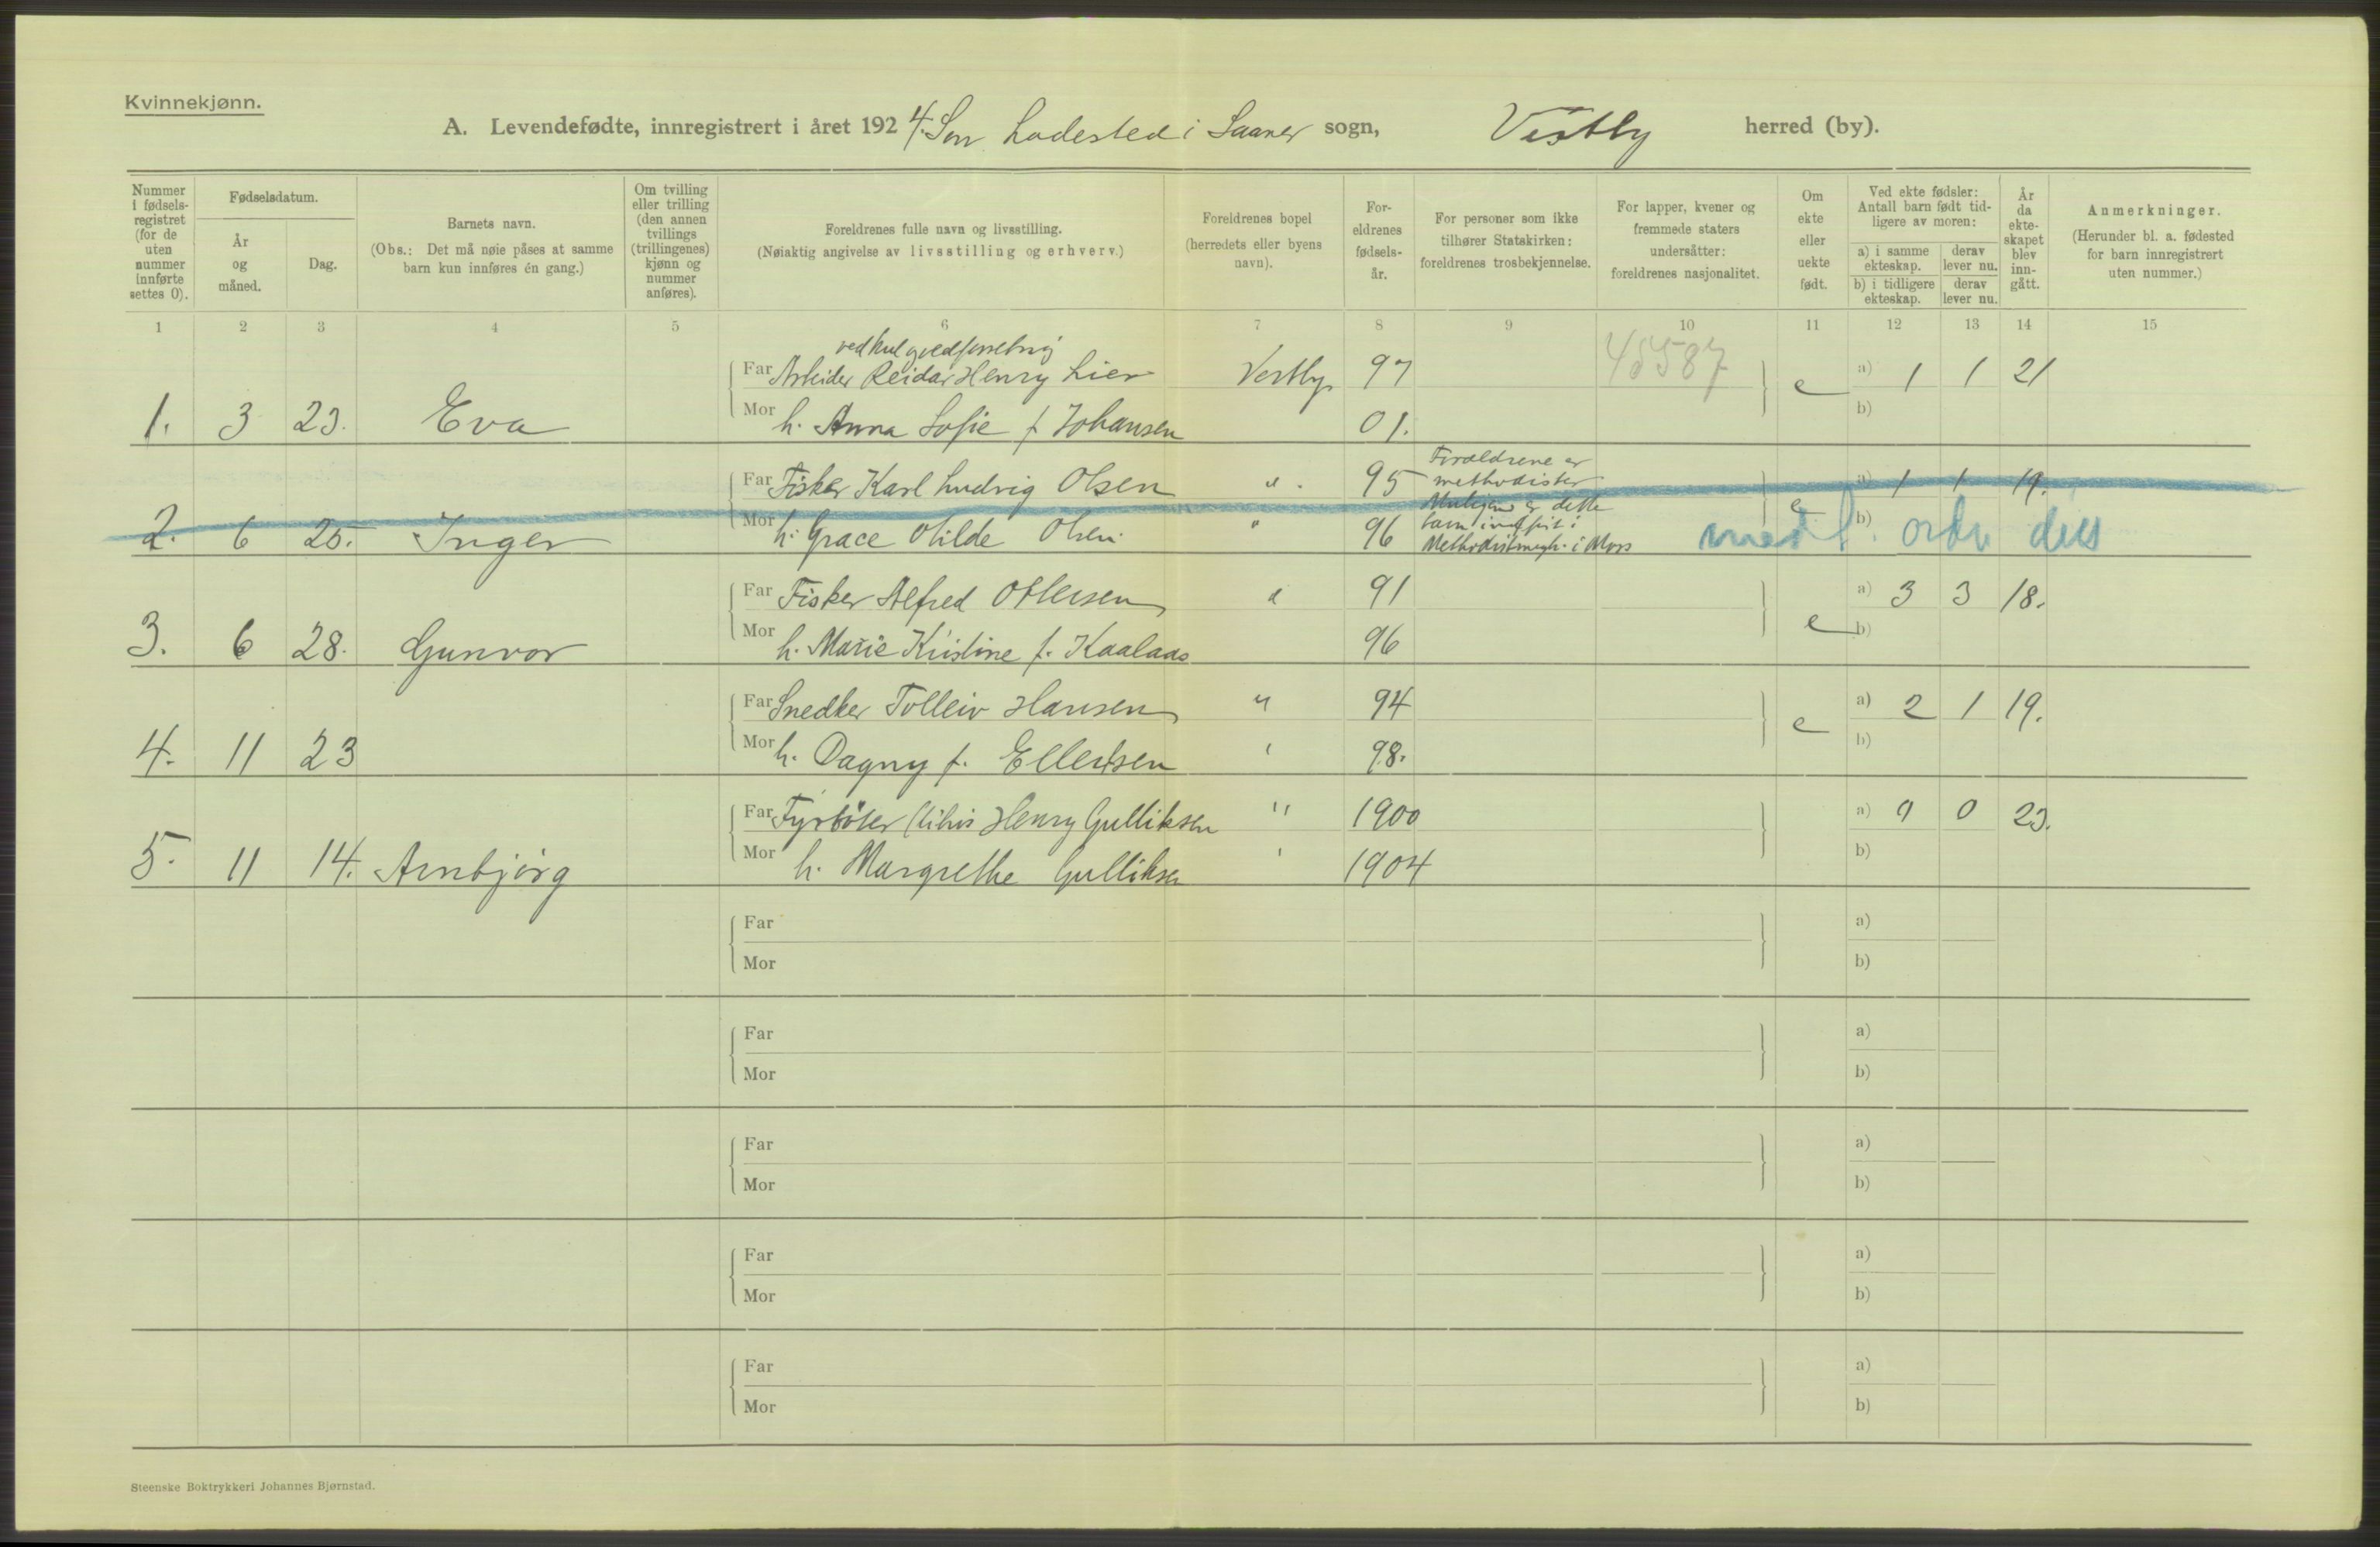 Kvinnekjønn.
A. Levendefødte, innregistrert i året 1924. Son Ladested i Saaner sogn, Vestby herred (by).
Nummer i fødsels-registret (for de uten nummer innførte settes 0).
Fødselsdatum.
År og måned.
Dag.
Barnets navn.
(Obs.: Det må nøie påses at samme barn kun innføres én gang.)
Om tvilling eller trilling (den annen tvillings (trillingenes) kjønn og nummer anføres).
Foreldrenes fulle navn og livsstilling.
(Nøiaktig angivelse av livsstilling og erhverv.)
Foreldrenes bopel (herredets eller byens navn).
For-eldrenes fødsels-år.
For personer som ikke tilhører Statskirken: foreldrenes trosbekjennelse.
For lapper, kvener og fremmede staters undersåtter: foreldrenes nasjonalitet.
Om ekte eller uekte født.
Ved ekte fødsler: Antall barn født tid-ligere av moren:
a) i samme ekteskap.
derav lever nu.
b) i tidligere ekteskap.
derav lever nu.
År da ekte-skapet blev inn-gått.
Anmerkninger.
(Herunder bl. a. fødested for barn innregistrert uten nummer.)
1 2 3 4 5 6 7 8 9 10 11 12 13 14 15
45587
Far Arbeider Reidar Henry Lier Vestby 97 e a) 1 1 21
1. 3 23. Eva Mor h. Anna Sofie f Johansen 01. b)
Far Fisker Karl Ludvig Olsen " 95 Forældrene er methodister e a) 1 1 19.
2. 6 25. Inger Mor h. Grace Otilde Olsen " 96 Muligens er dette barn indført i Methodistmegh. i Moss b)
Far Fisker Alfred Ottersen " 91 e a) 3 3 18.
3. 6 28. Gunvor Mor h. Marie Kristine f. Kaalaas 96 b)
Far Snedker Tolleiv Hansen " 94 e a) 2 1 19.
4. 11 23 Mor h. Dagny f. Ellertsen " 98. b)
Far Fyrbøter Henry Gulliksen " 1900 a) 0 0 23.
5. 11 14. Arnbjørg Mor h. Margrethe Gulliksen " 1904 b)
Far a)
Mor b)
Far a)
Mor b)
Far a)
Mor b)
Far a)
Mor b)
Far a)
Mor b)
Steenske Boktrykkeri Johannes Bjørnstad.